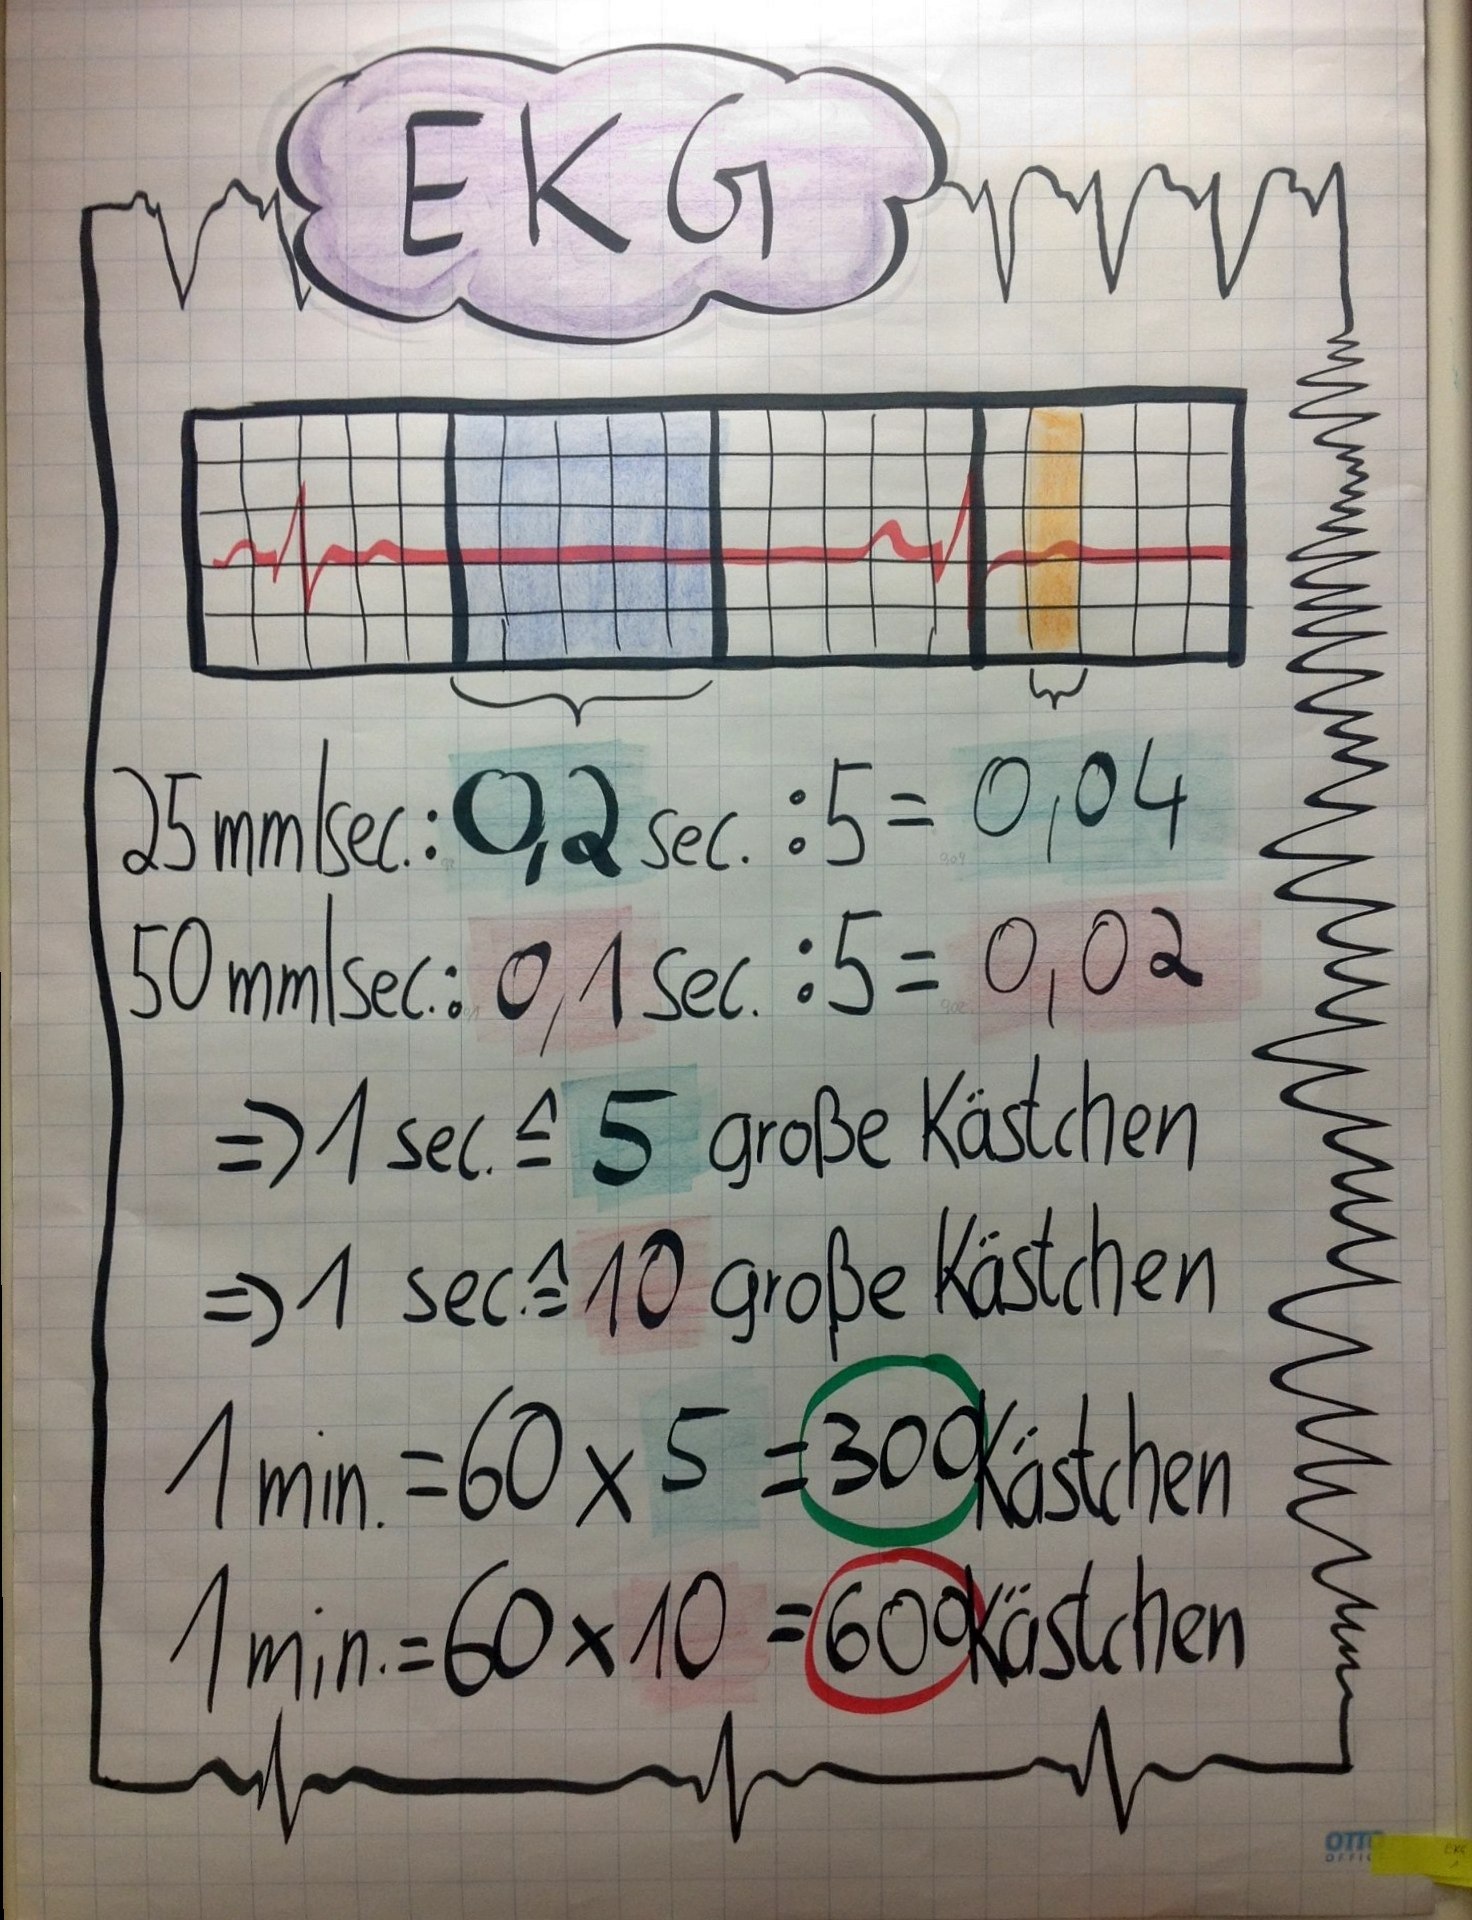 EKG
25mm/sec.: 0,2 sec. :5 = 0,04
50mm/sec.: 0,1 sec. :5 = 0,02
=> 1 sec. ≙ 5 große Kästchen
=> 1 sec. ≙ 10 große Kästchen
1 min. = 60 x 5 = 300 Kästchen
1 min. = 60 x 10 = 600 Kästchen
OTTO
OFFICE
EKG